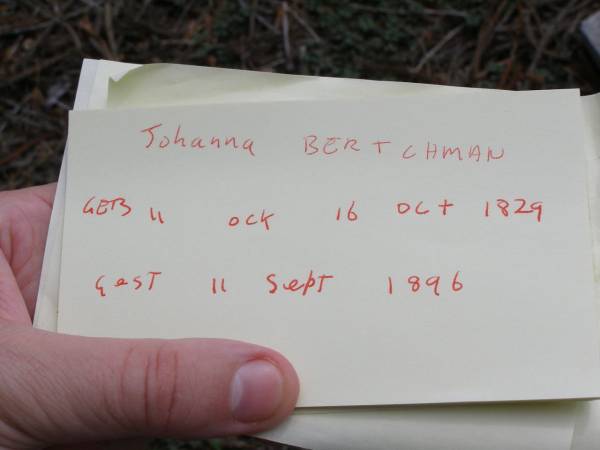 Johanna BERTCHMAN
GEB 11 OCK 16 OCT 1829
GEST 11 Sept 1896